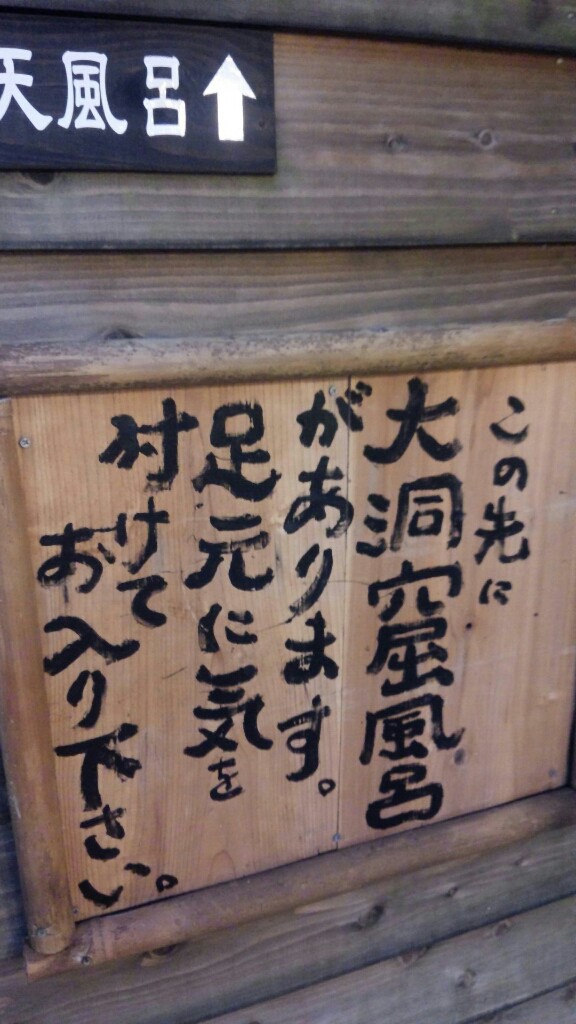 天風呂↑
この先に
大洞窟風呂
があります。
足元に気を
付けて
お入り下さい。